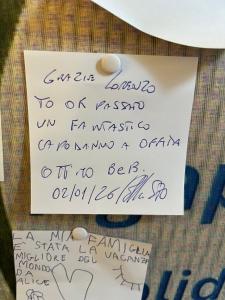 GRAZIE LORENZO
TO OK PASSATO
UN FANTASTICO
CAPODANNO A OFFIDA
OTTIMO BeB.
02/01/26
LA MIA FAMIGLIA
E' STATA LA VACANZA
MIGLIORE DEL
MONDO
DA
ALICE